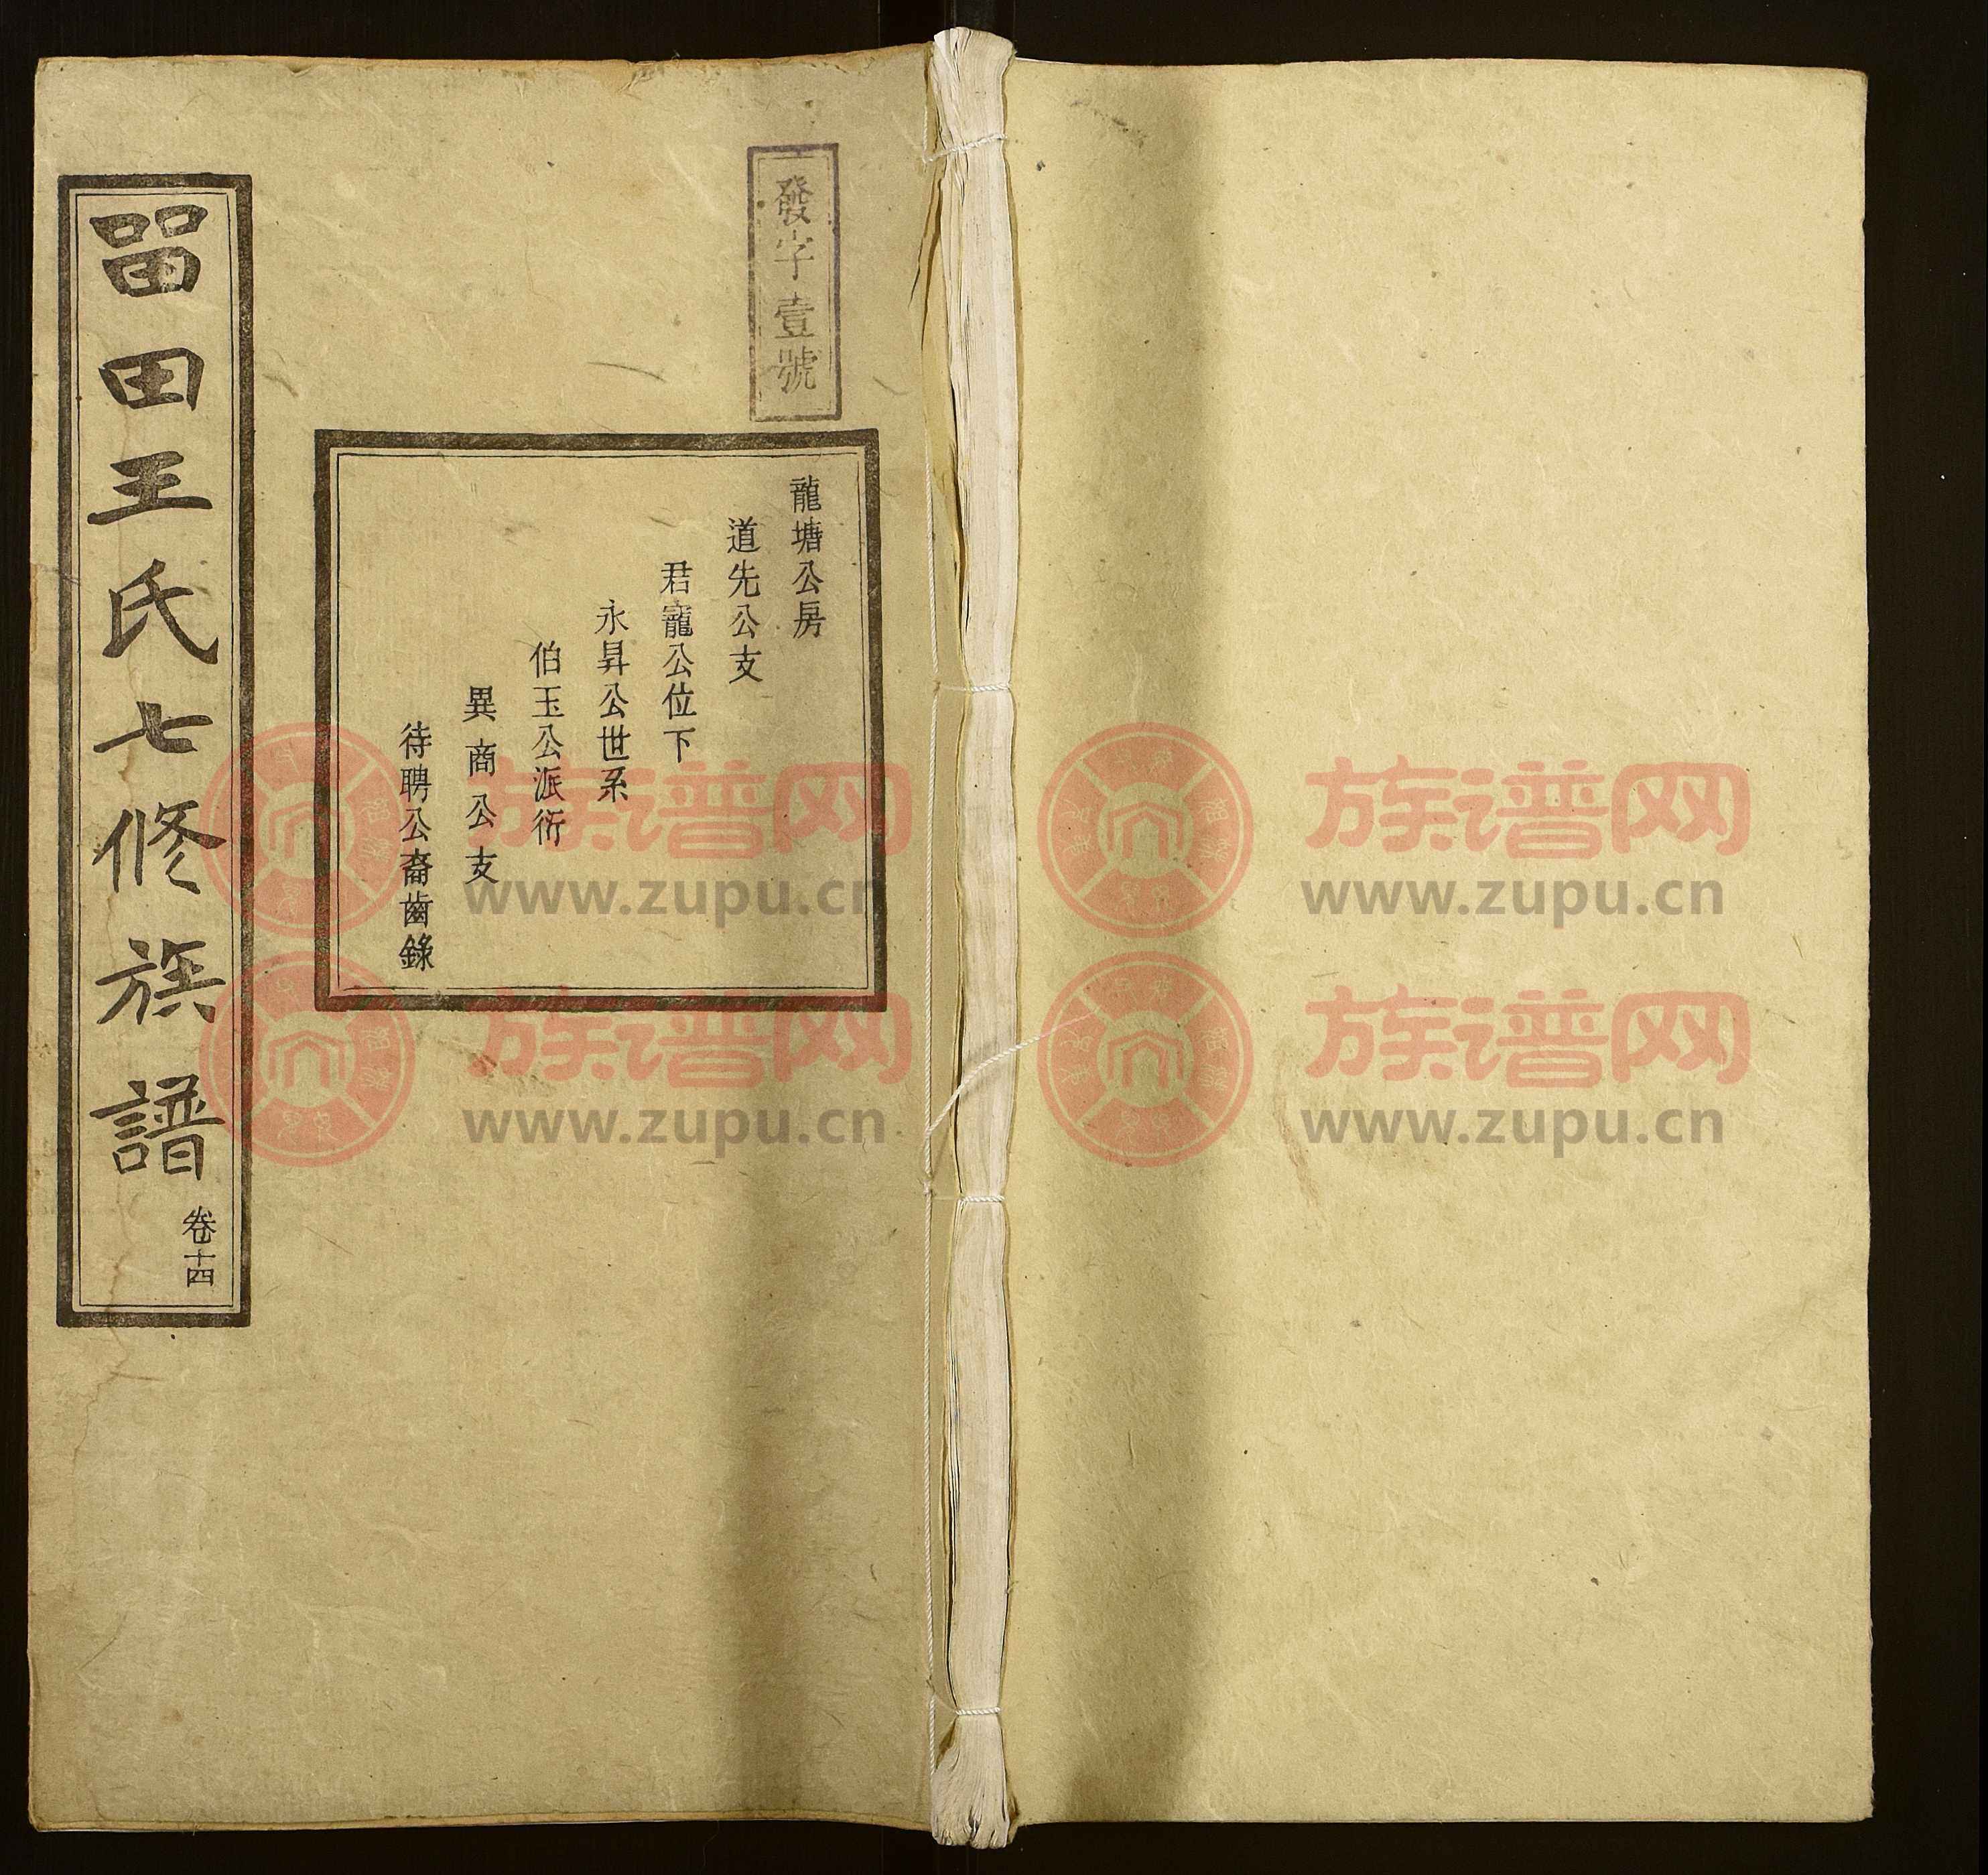 發字壹號
龍塘公房
道先公支
君寵公位下
永昇公世系
伯玉公派衍
異商公支
待聘公裔齒錄
畱田王氏七修族譜
卷十四
族谱网
www.zupu.cn
族谱网
www.zupu.cn
族谱网
www.zupu.cn
族谱网
www.zupu.cn